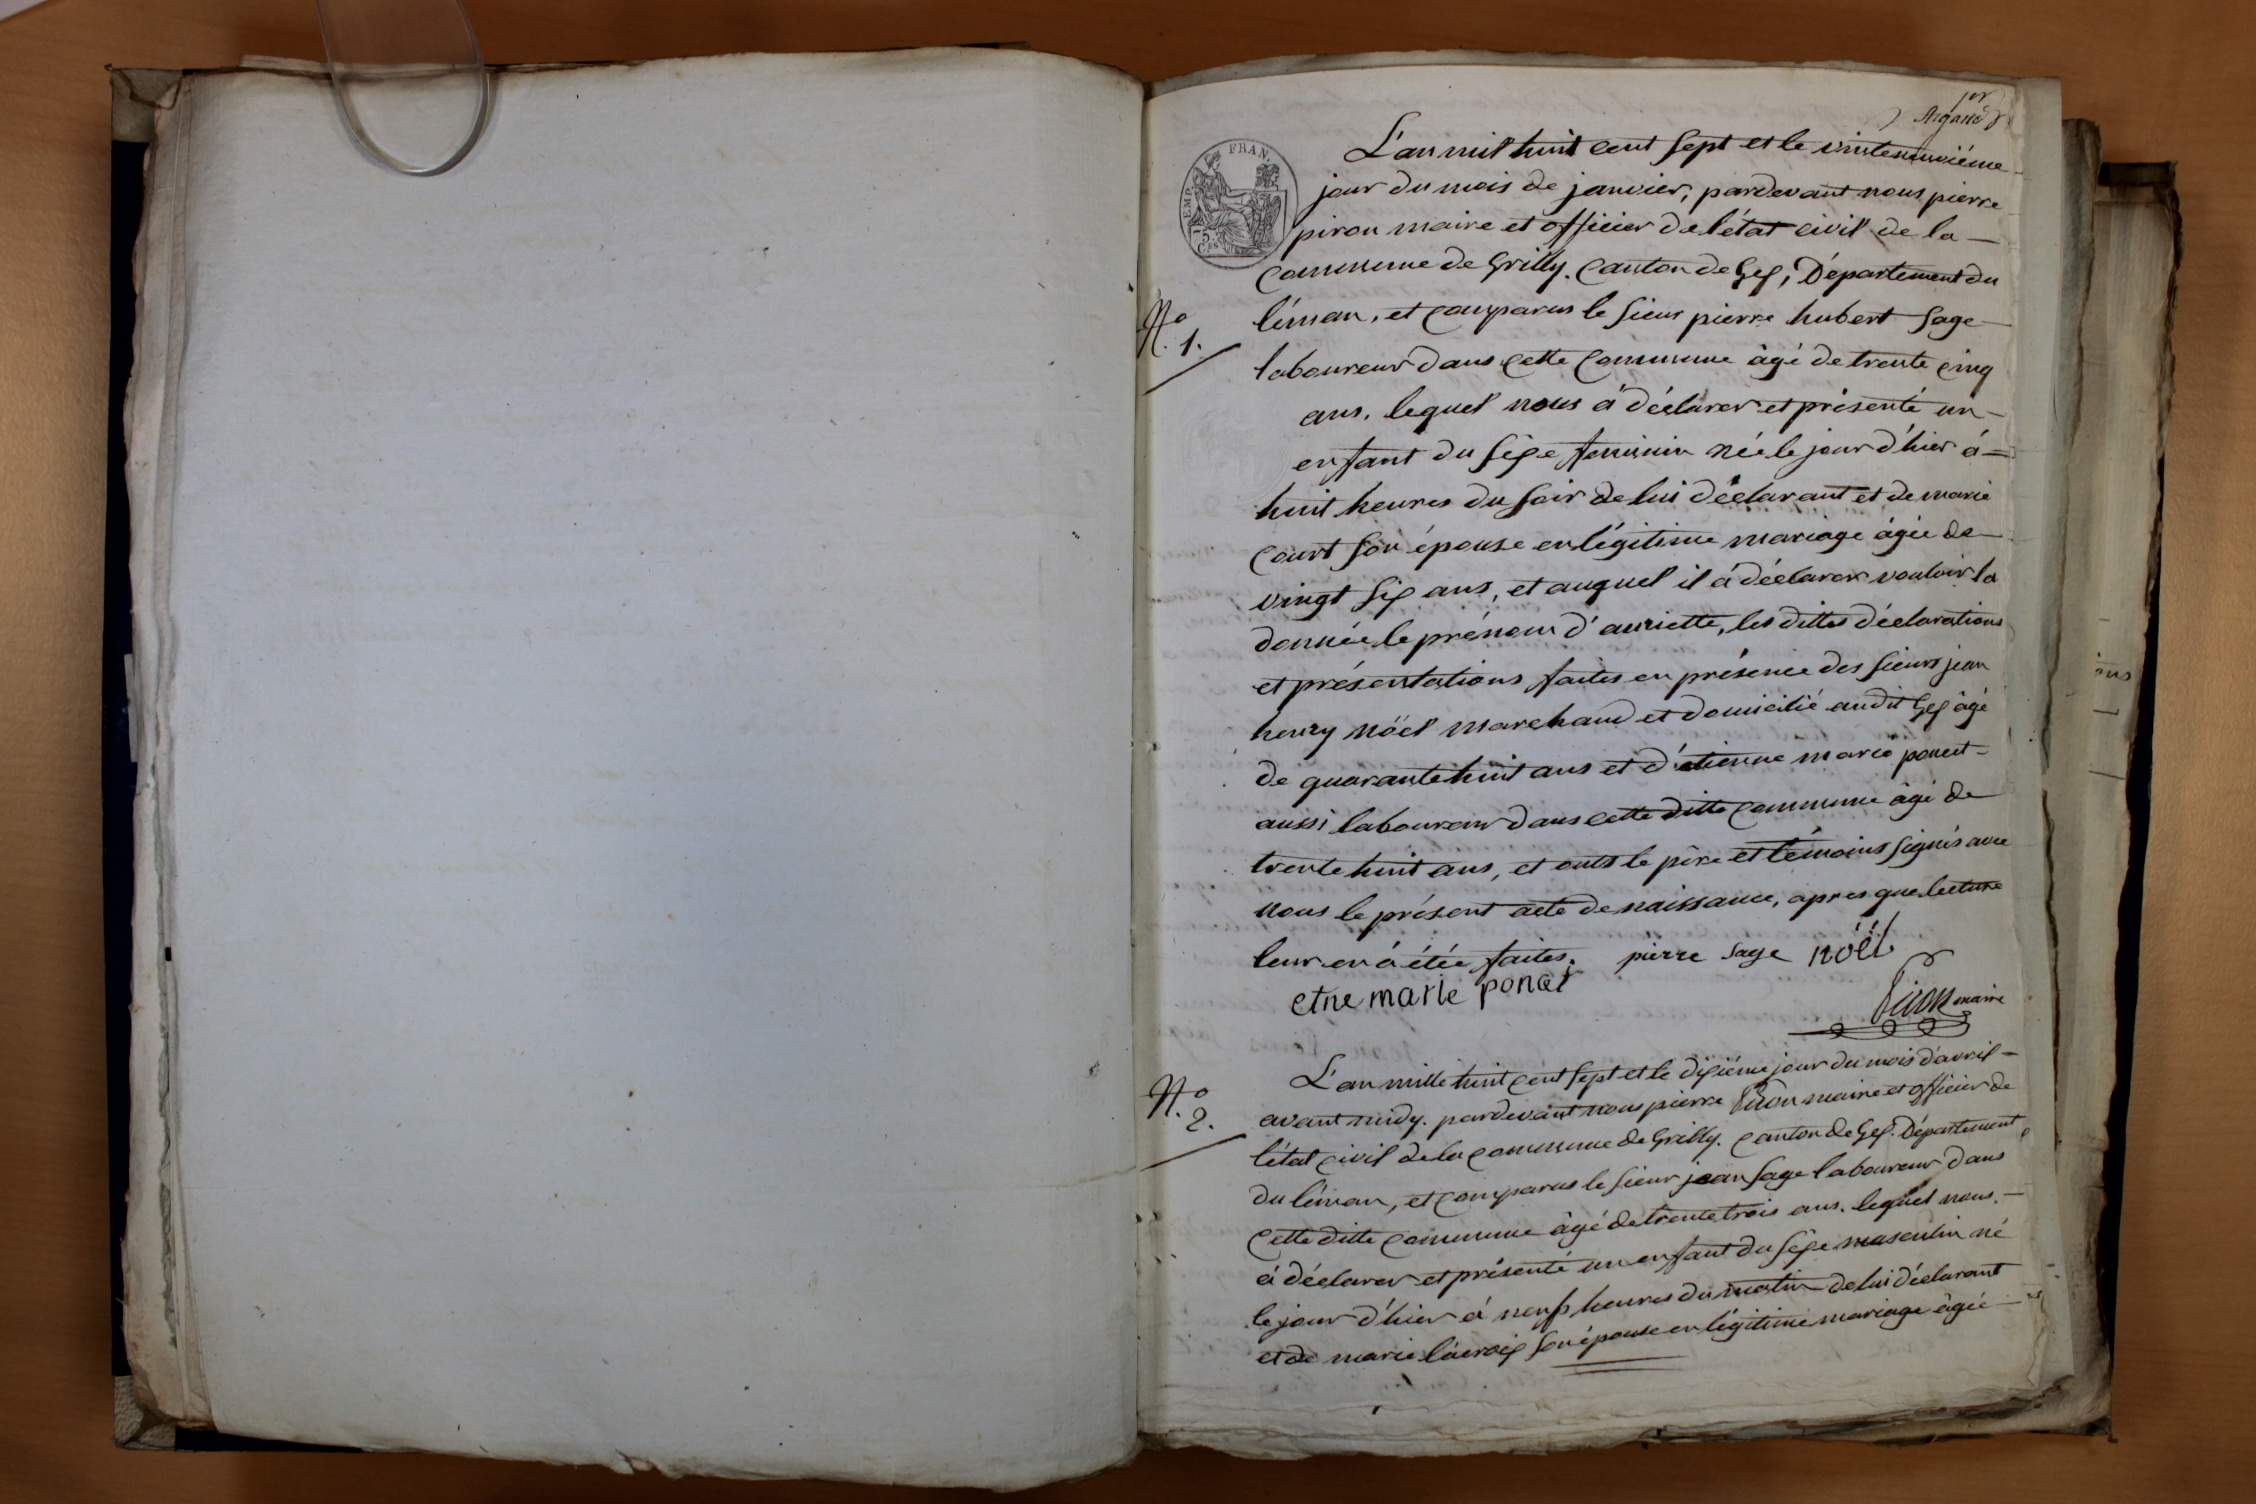 1er
Argand
EMP. FRAN.
75 c.
L'an mil huit cent sept et le vinteneuviéme
jour du mois de janvier, pardevant nous pierre
piron maire et officier de l'état civil de la –
Commune de Grilly. Canton de Gex, Département du
N.o 1.
léman, et comparus le sieur pierre hubert Sage
laboureur dans cette Commune âgé de trente cinq
ans, lequel nous á déclarer et présenté un –
enfant du sexe feminin née le jour d'hier á =
huit heures du soir de lui déclarant et de marie
Court son épouse en légitime mariage âgée de
vingt six ans, et auquel il á déclarer vouloir la
donnée le prénom d'auriette, les dittes déclarations
et présentations faites en présence des sieurs jean
henry nöel marchand et domicilié audit Gex âgé
de quarante huit ans et d'étienne marie poncet –
aussi laboureur dans cette ditte Commune âgé de
trente huit ans, et onts le père et témoins signés avec
nous le présent acte de naissance, apres que lecture
leur en á étée faites. pierre sage nöël
etne marie poncet
Piron maire
N.o 2.
L'an mille huit cent sept et le dixiéme jour du mois d'avril –
avant midy. pardevant nous pierre Piron maire et officier de
l'état civil de la Commune de Grilly. Canton de Gex. Département
du léman, et comparus le sieur jean Sage laboureur dans
Cette ditte Commune âgé de trente trois ans. lequel nous. –
á déclarer et présenté un enfant du sexe masculin né
le jour d'hier á neuf heures du matin de lui déclarant
et de marie lácroix son épouse en légitime mariage âgée –